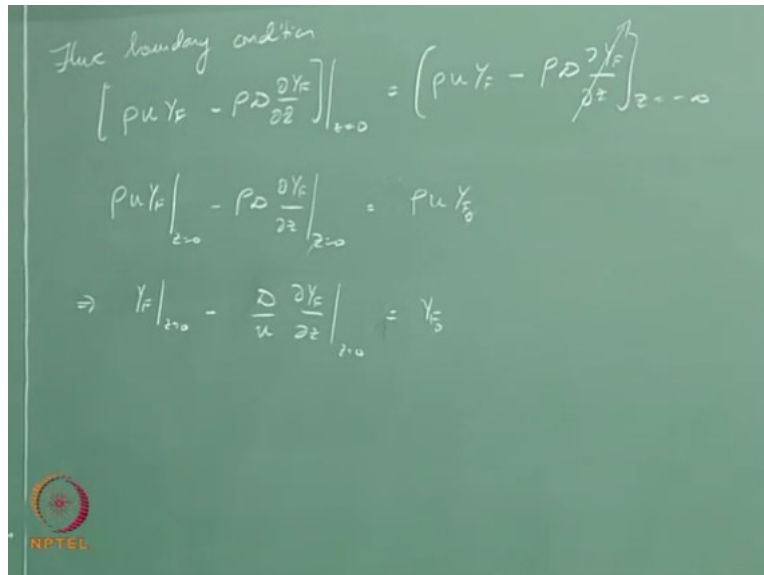 Flux boundary condition
[ρuY_F - ρD ∂Y_F/∂z]|_{z=0} = (ρuY_F - ρD ∂Y_F/∂z)_{z=-∞}
ρuY_F|_{z=0} - ρD ∂Y_F/∂z|_{z=0} = ρuY_{F_0}
⇒ Y_F|_{z=0} - D/u ∂Y_F/∂z|_{z=0} = Y_{F_0}
NPTEL